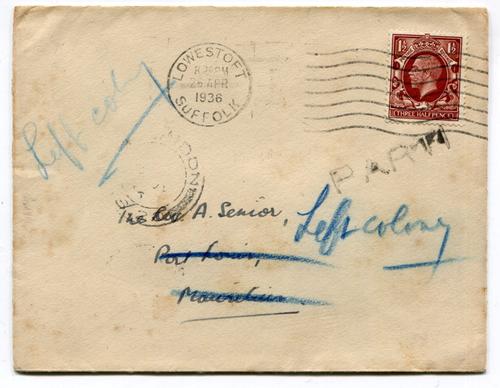 LOWESTOFT
8 PM
26 APR
1936
SUFFOLK
1½ 1½
THREE HALFPENCE
Left colony
PARTI
The Rev. A. Senior,
Left colony
Port Louis,
Mauritius